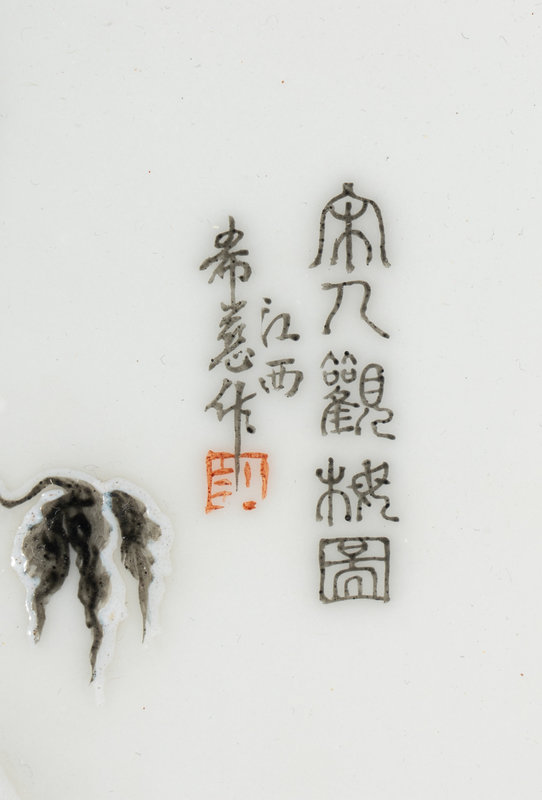 宋人觀梅圖
江西
希慈作
印